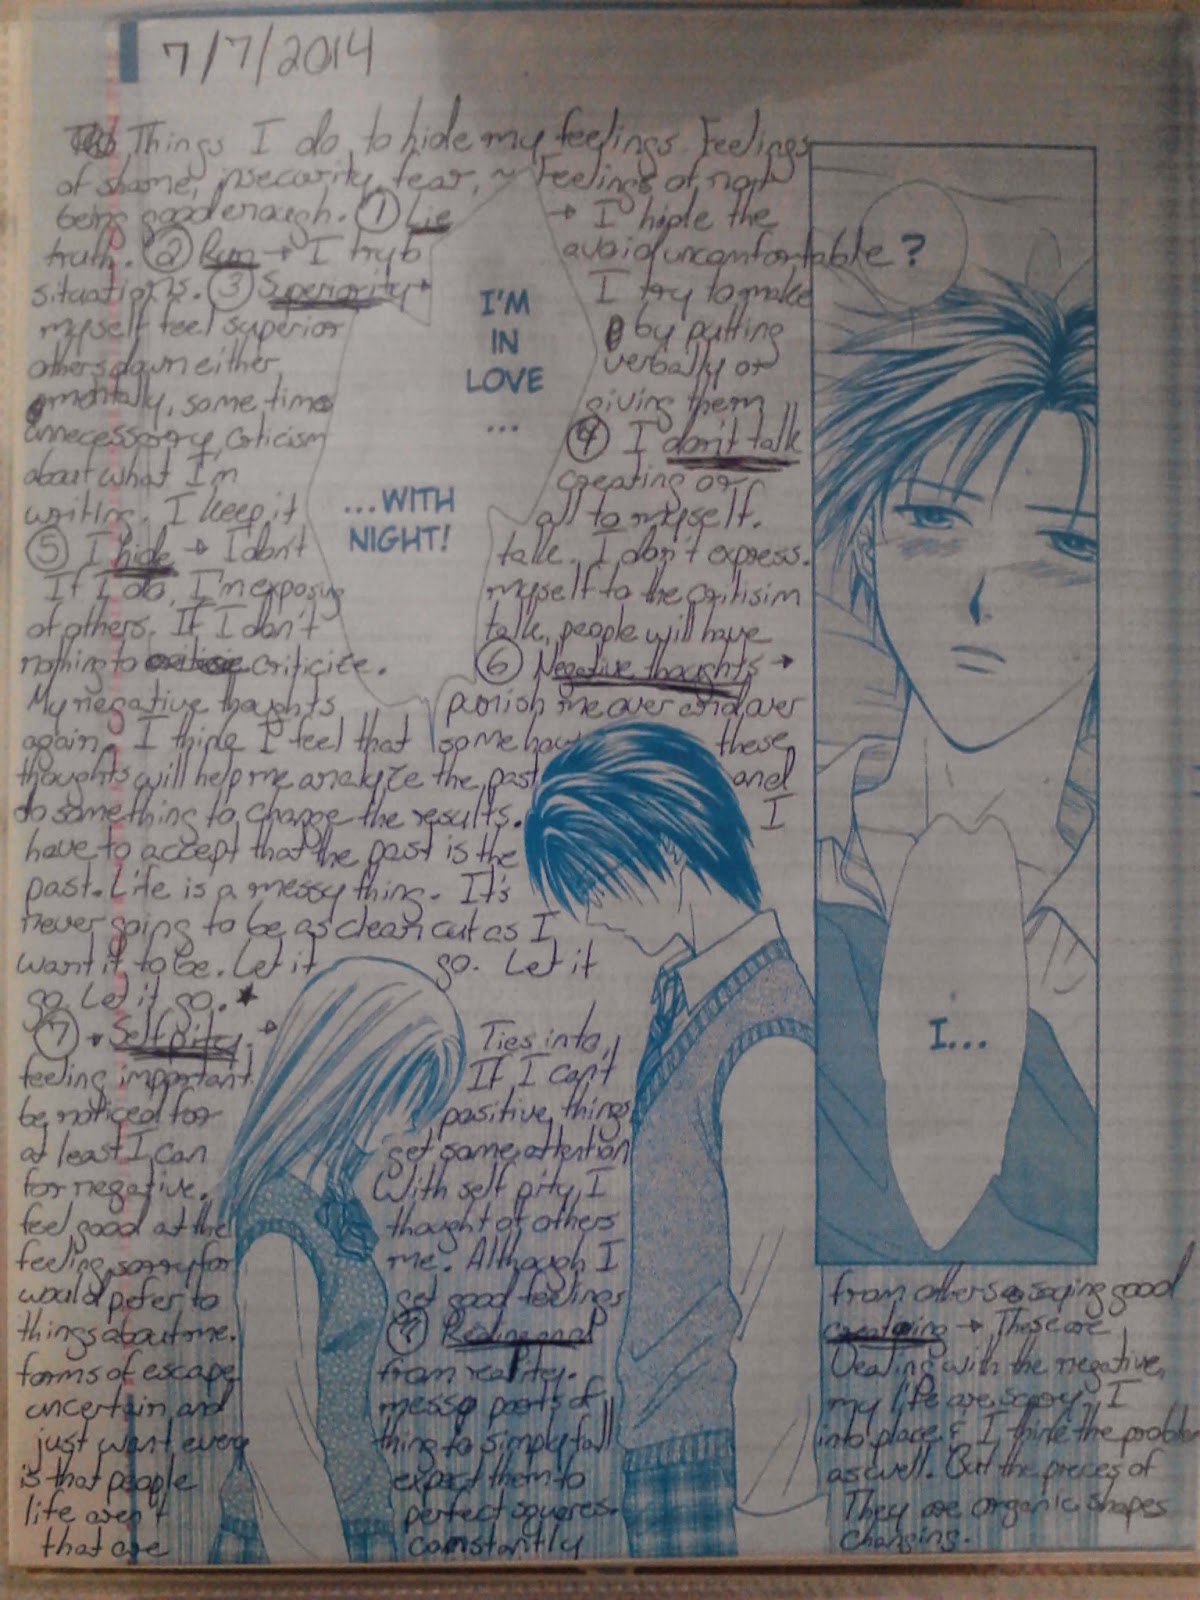 7/7/2014
Things I do to hide my feelings. Feelings
of shame, insecurity, fear, ~ Feelings of not
being good enough. ① Lie → I hide the
truth. ② Run → I try to avoid uncomfortable
situations. ③ Superiority → I try to make
myself feel superior by putting
others down either verbally or
mentally, some time giving them
unnecessary criticism ④ I don't talk
about what I'm creating or
writing. I keep it all to myself.
⑤ I hide → I don't talk. I don't express.
If I do, I'm exposing myself to the critisim
of others. If I don't talk, people will have
nothing to criticize. ⑥ Negative thoughts →
My negative thoughts punish me over and over
again. I think I feel that somehow these
thoughts will help me analyze the past and
do something to change the results. I
have to accept that the past is the
past. Life is a messy thing. It's
never going to be as clean cut as I
want it to be. Let it go. Let it
go. Let it go. ★
⑦ Self pity → Ties into
feeling important. If I can't
be noticed for positive things
at least I can get some attention
for negative. With self pity, I
feel good at the thought of others
feeling sorry for me. Although I
would prefer to get good feelings from others saying good
things about me. ⑧ and → These are
forms of escape from reality. Dealing with the negative,
uncertain and messy parts of my life are scary. I
just want every thing to simply fall into place. & I think the problem
is that people expect them to as well. But the pieces of
life aren't perfect squares. They are organic shapes
that are constantly changing.
I'M
IN
LOVE
...
...WITH
NIGHT!
?
I...